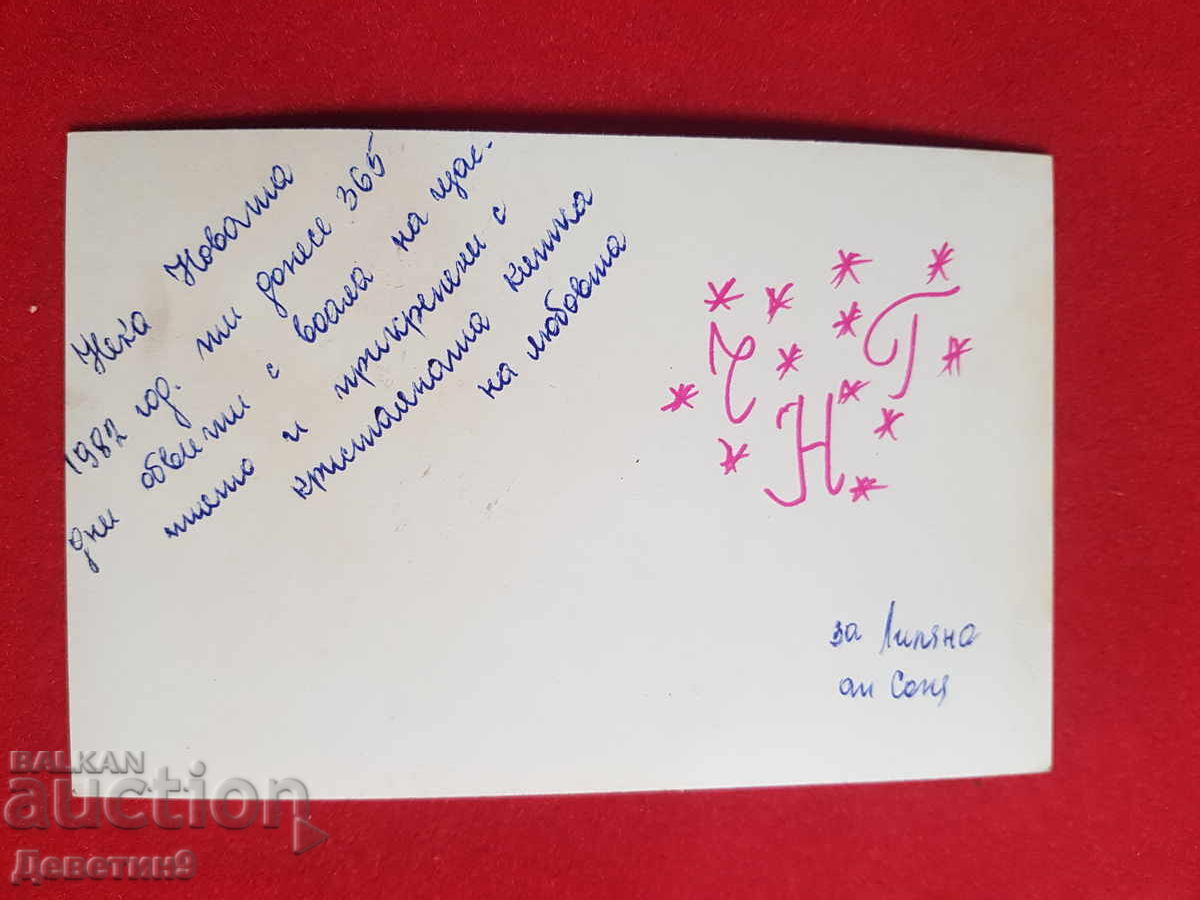 Нека Новата
1982 год. ти донесе 365
дни обвити с воала на щас-
тието и прикрепени с
кристалната китка
на любовта
Ч Н Г
за Лиляна
от Соня
BALKAN
auction
Деветин9